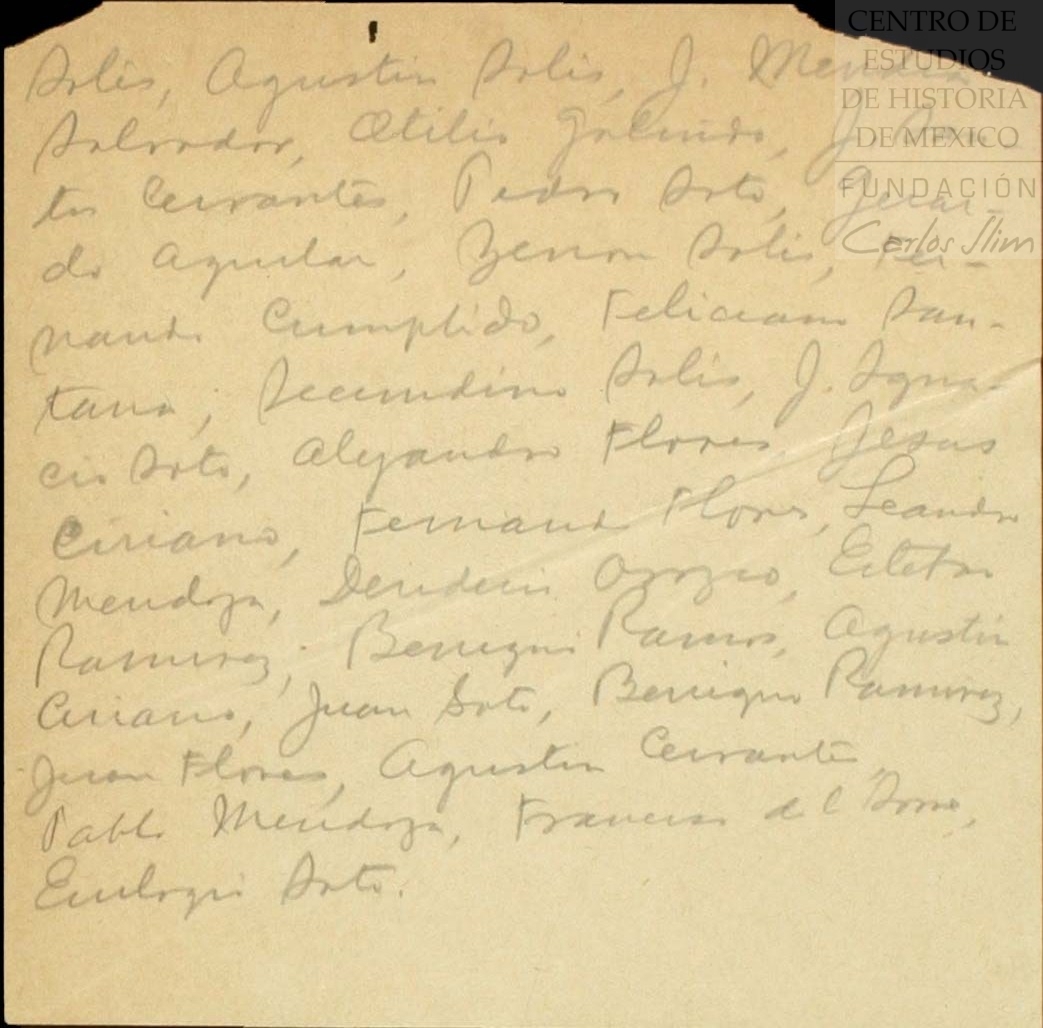 CENTRO DE
ESTUDIOS
DE HISTORIA
DE MEXICO
FUNDACIÓN
Carlos Slim
Solis, Agustin Solis, J.
Salvador, Otilio Galindo, J. San-
tos Cervantes, Pedro Soto, Gerar-
do Aguilar, Zenon Solis, Fer-
nando Cumplido, Feliciano San-
tana, Secundino Solis, J. Igna-
cio Soto, Alejandro Flores, Jesus
Ciriano, Fernando Flores, Leandro
Mendoza, Desiderio Orozco, Esteban
Ramirez, Benigno Ramos, Agustin
Ciriano, Juan Soto, Benigno Ramirez,
Juan Flores, Agustin Cervantes,
Pablo Mendoza, Francisco del
Eulogio Soto.